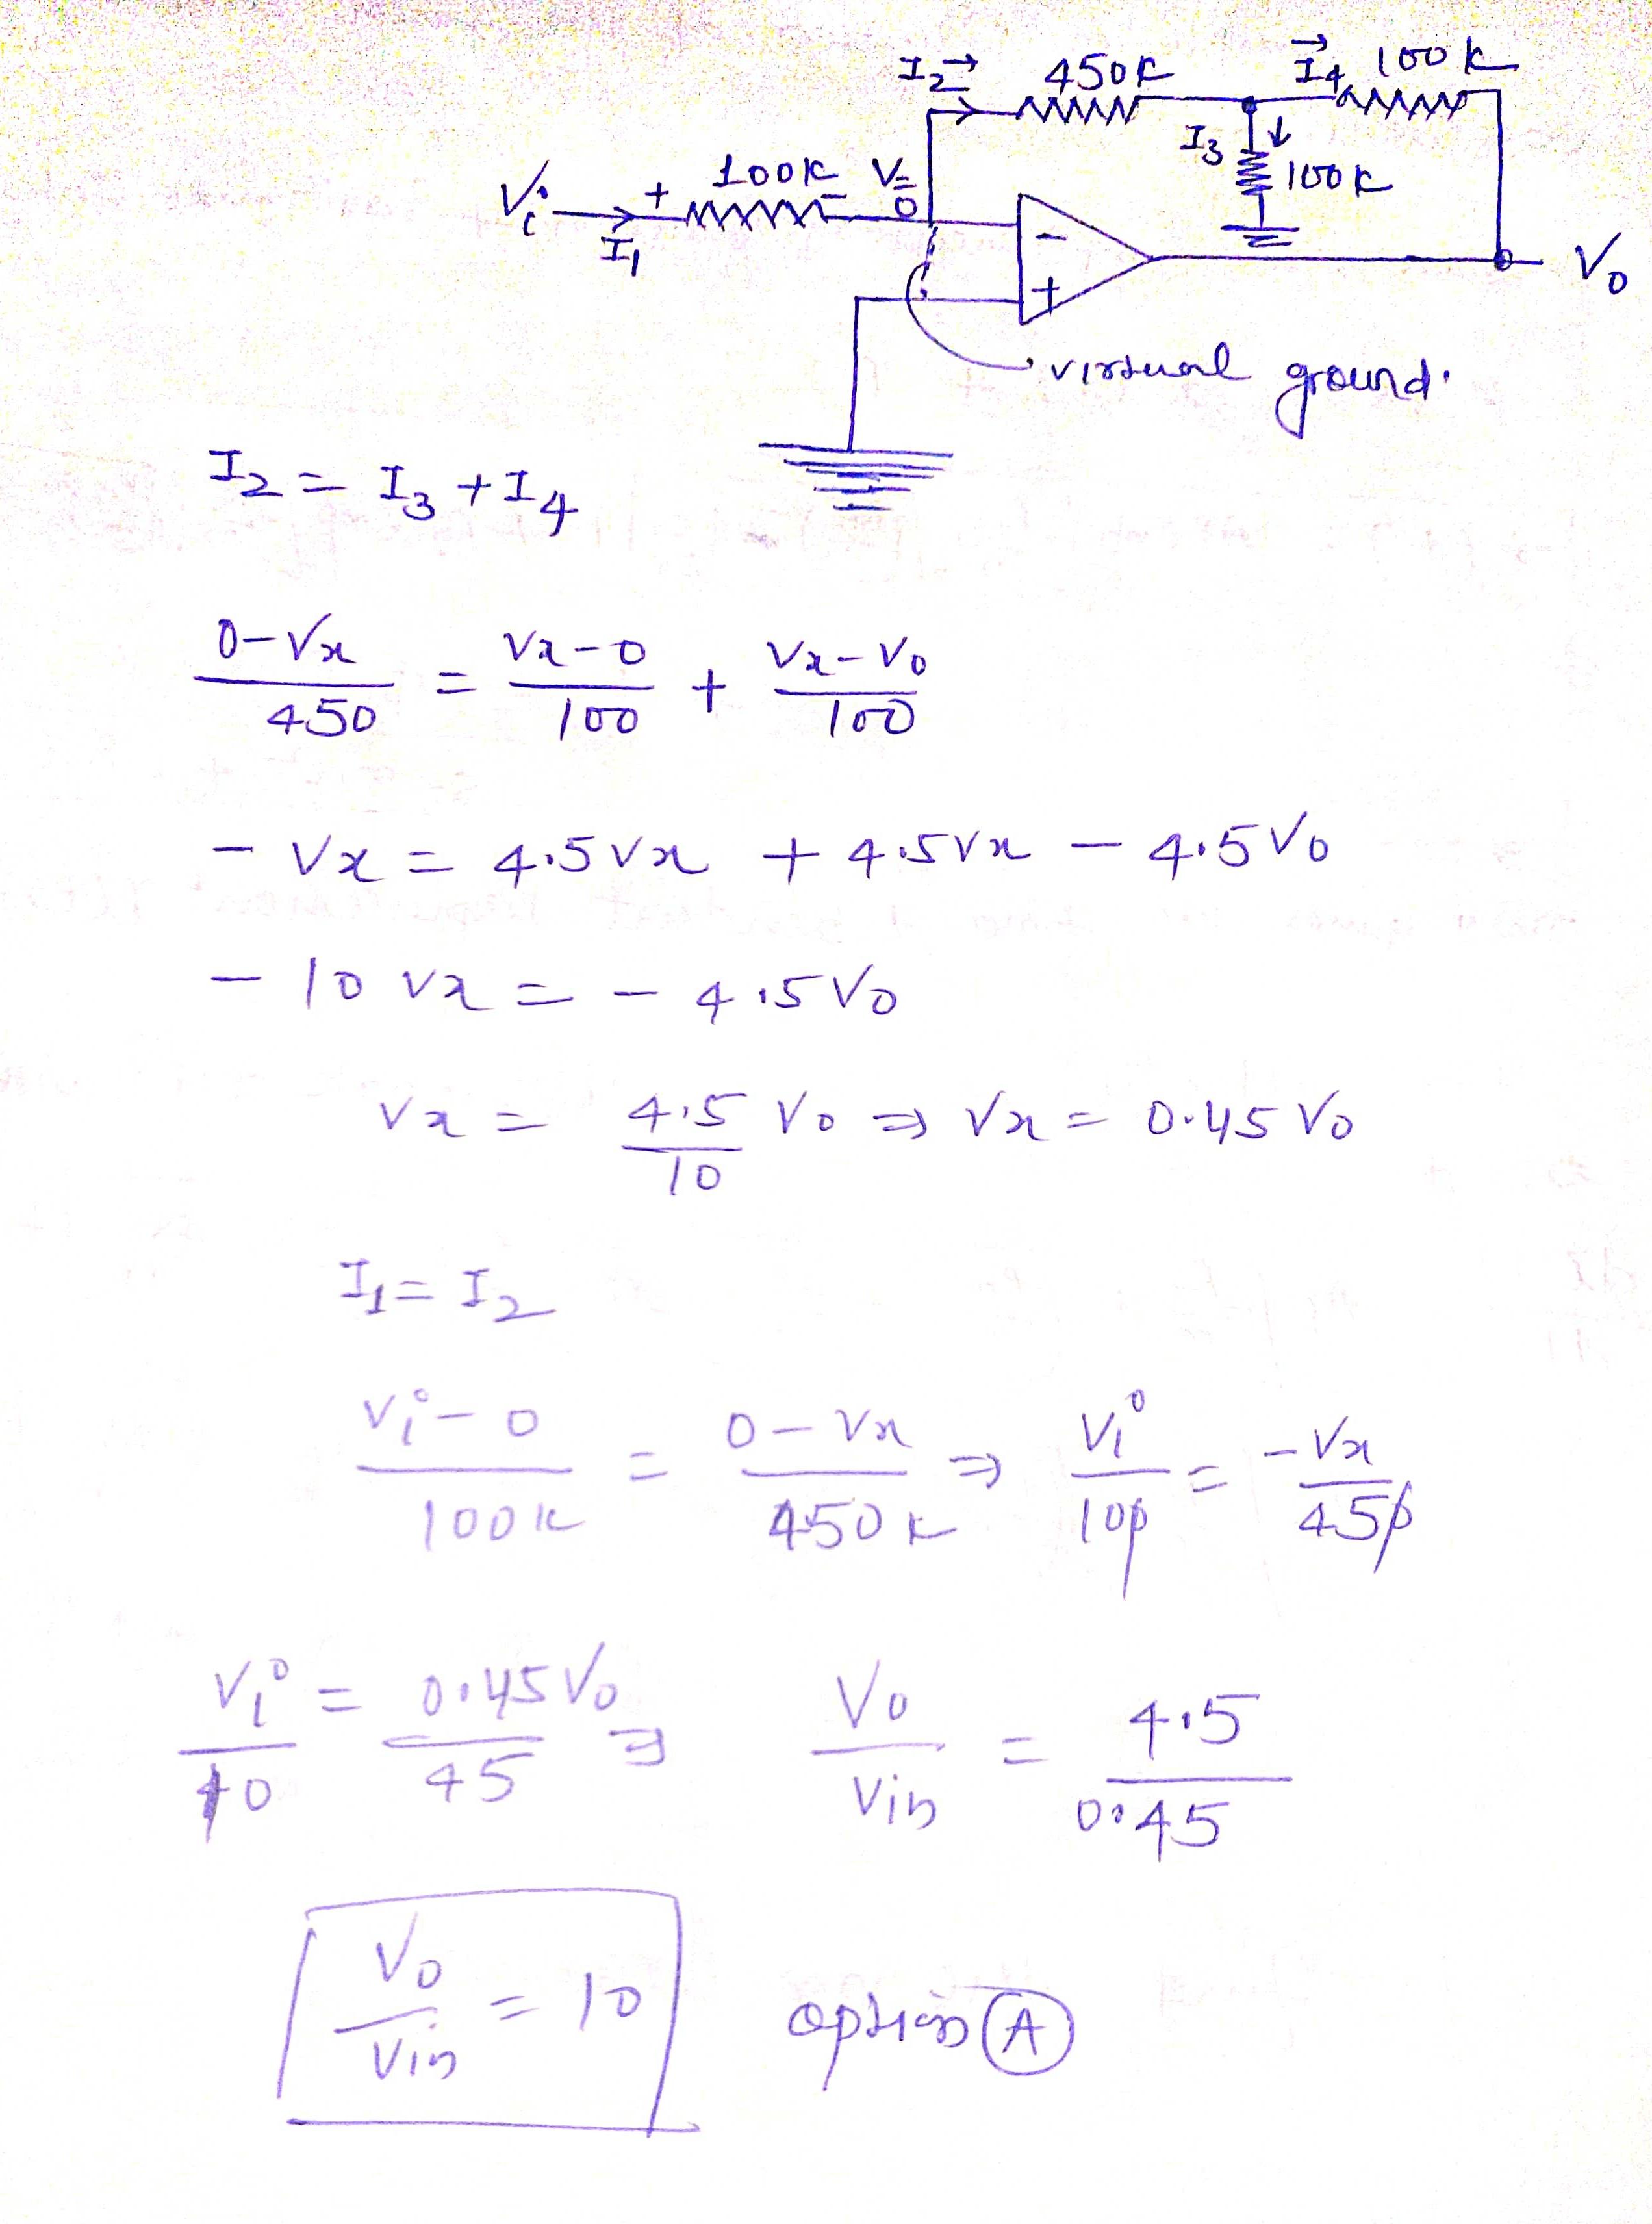 I2→ 450K I4→ 100K
I3 ↓ 100K
Vi + 100K − V=0
I1
−
+
Vo
virtual ground.
I2 = I3 + I4
(0−Vx)/450 = (Vx−0)/100 + (Vx−Vo)/100
− Vx = 4.5Vx + 4.5Vx − 4.5Vo
− 10 Vx = − 4.5Vo
Vx = 4.5/10 Vo ⇒ Vx = 0.45 Vo
I1 = I2
(Vi−0)/100K = (0−Vx)/450K ⇒ Vi/100 = −Vx/450
Vi/10 = 0.45Vo/45 ⇒ Vo/Vin = 4.5/0.45
Vo/Vin = 10 option A